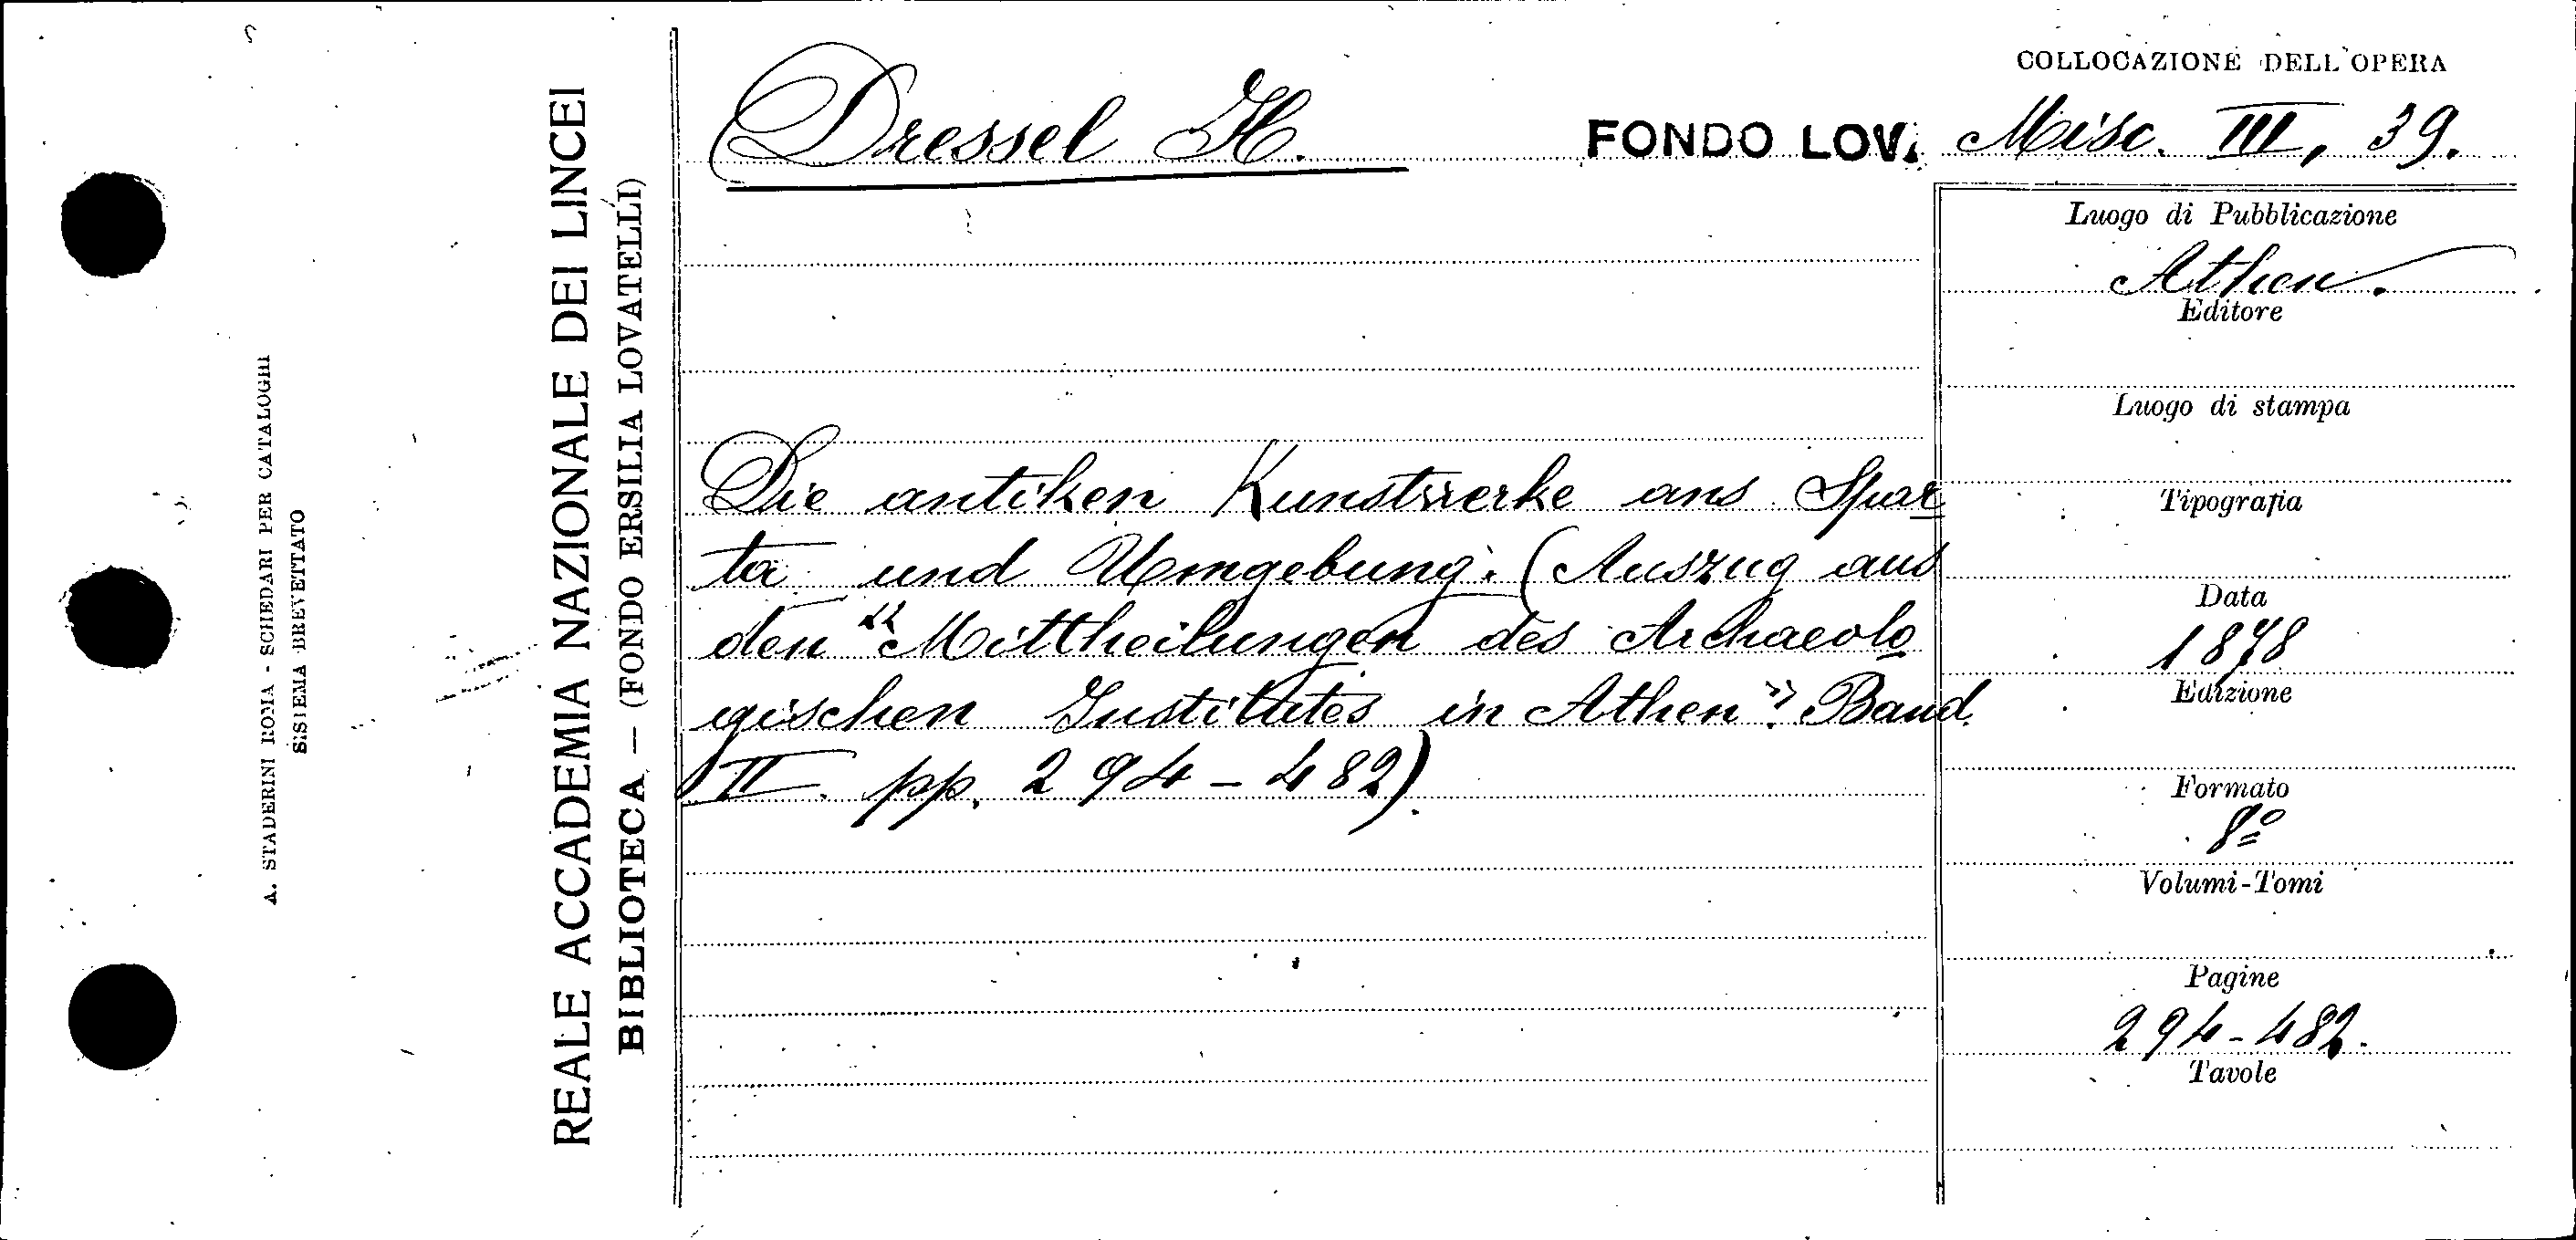 COLLOCAZIONE DELL'OPERA
Dressel H. FONDO LOV. Misc. III, 39.
Die antiken Kunstwerke aus Spar
ta und Umgebung. (Auszug aus
den "Mittheilungen des Archaeolo
gischen Institutes in Athen". Band
II. pp. 294-482).
Luogo di Pubblicazione
Athen.
Editore
Luogo di stampa
Tipografia
Data
1878
Edizione
Formato
8º
Volumi-Tomi
Pagine
294-482.
Tavole
REALE ACCADEMIA NAZIONALE DEI LINCEI
BIBLIOTECA — (FONDO ERSILIA LOVATELLI)
A. STADERINI ROMA - SCHEDARI PER CATALOGHI
SISTEMA BREVETTATO